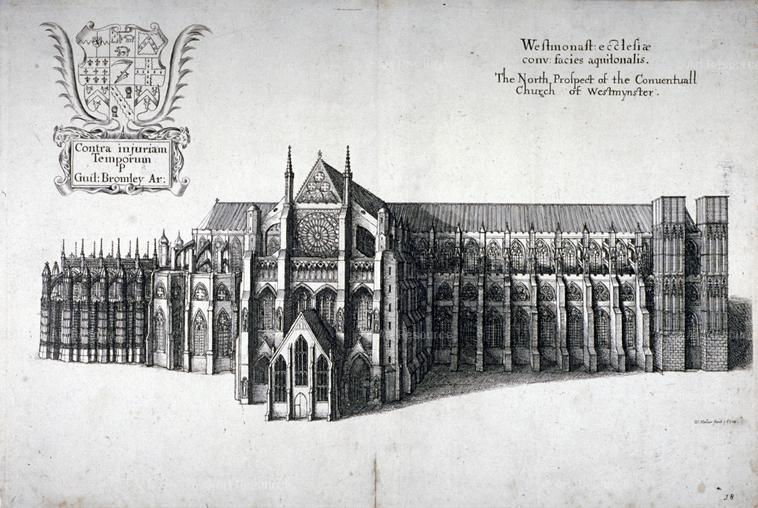 Contra injuriam
Temporum
P
Guil: Bromley Ar:
Westmonast: ecclesiæ
conv: facies aquilonalis.
The North Prospect of the Conventuall
Church of Westmynster.
W. Hollar fecit
28